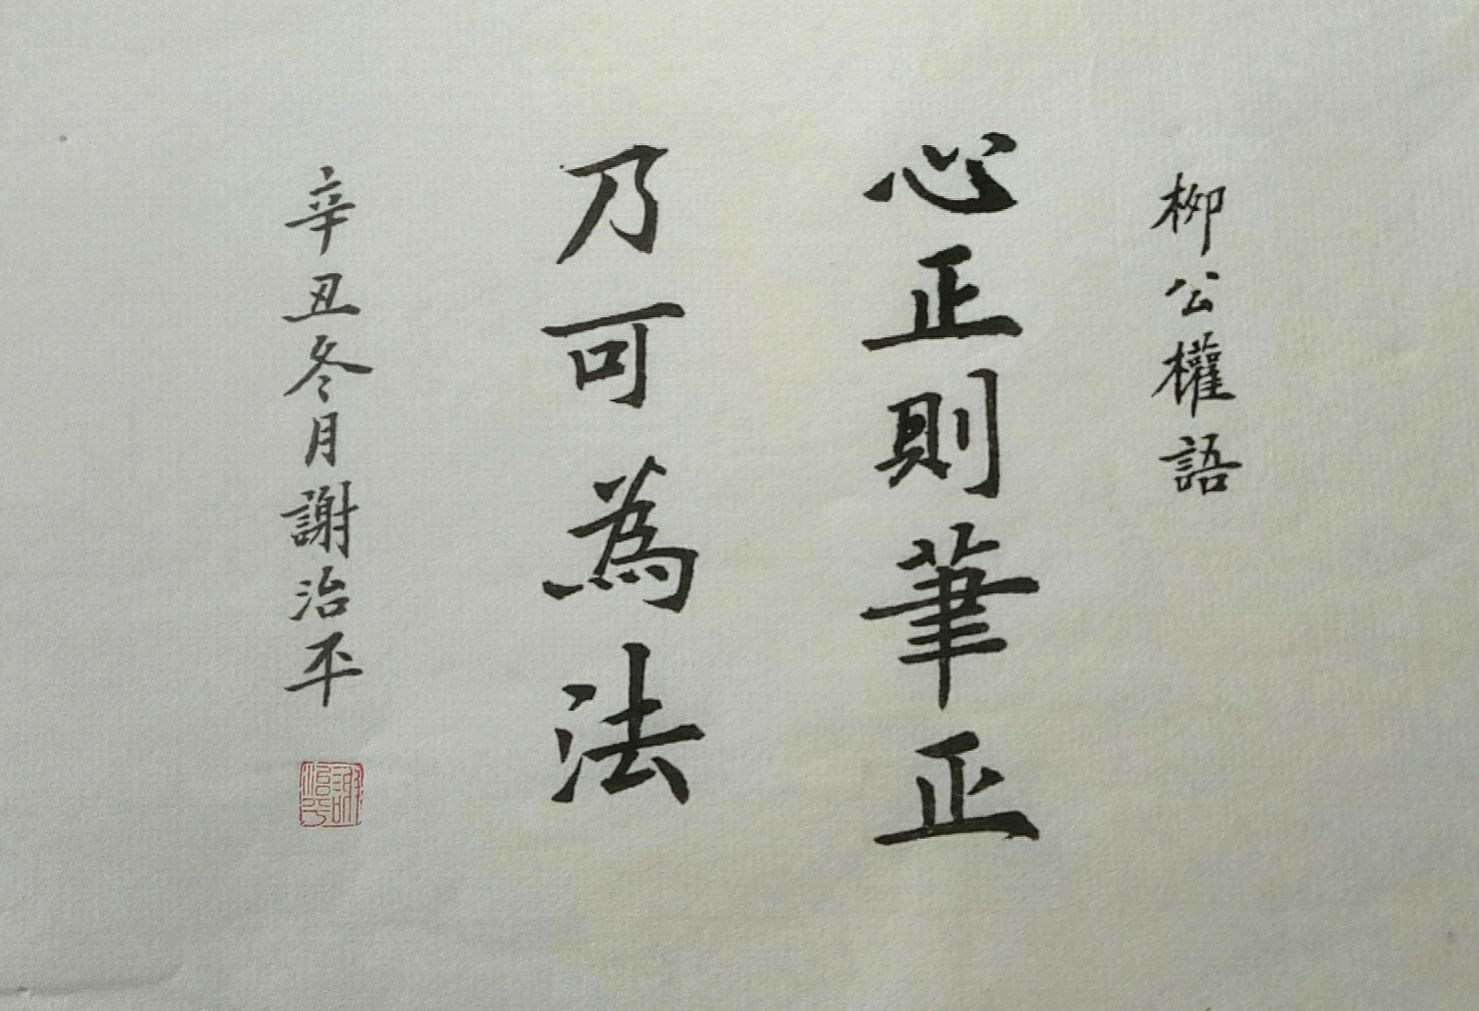 柳公權語
心正則筆正
乃可為法
辛丑冬月謝治平
謝治平